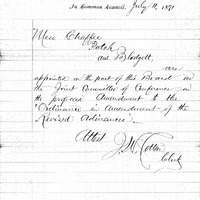 In Common Council, July 11, 1871
Mess Chaffee
Hatch
and Blodgett,
are
appointed on the part of this Board on
the Joint Committee of Conference on
the proposed Amendment to the
"Ordinance in Amendment of the
Revised Ordinances".
Attest
Clerk